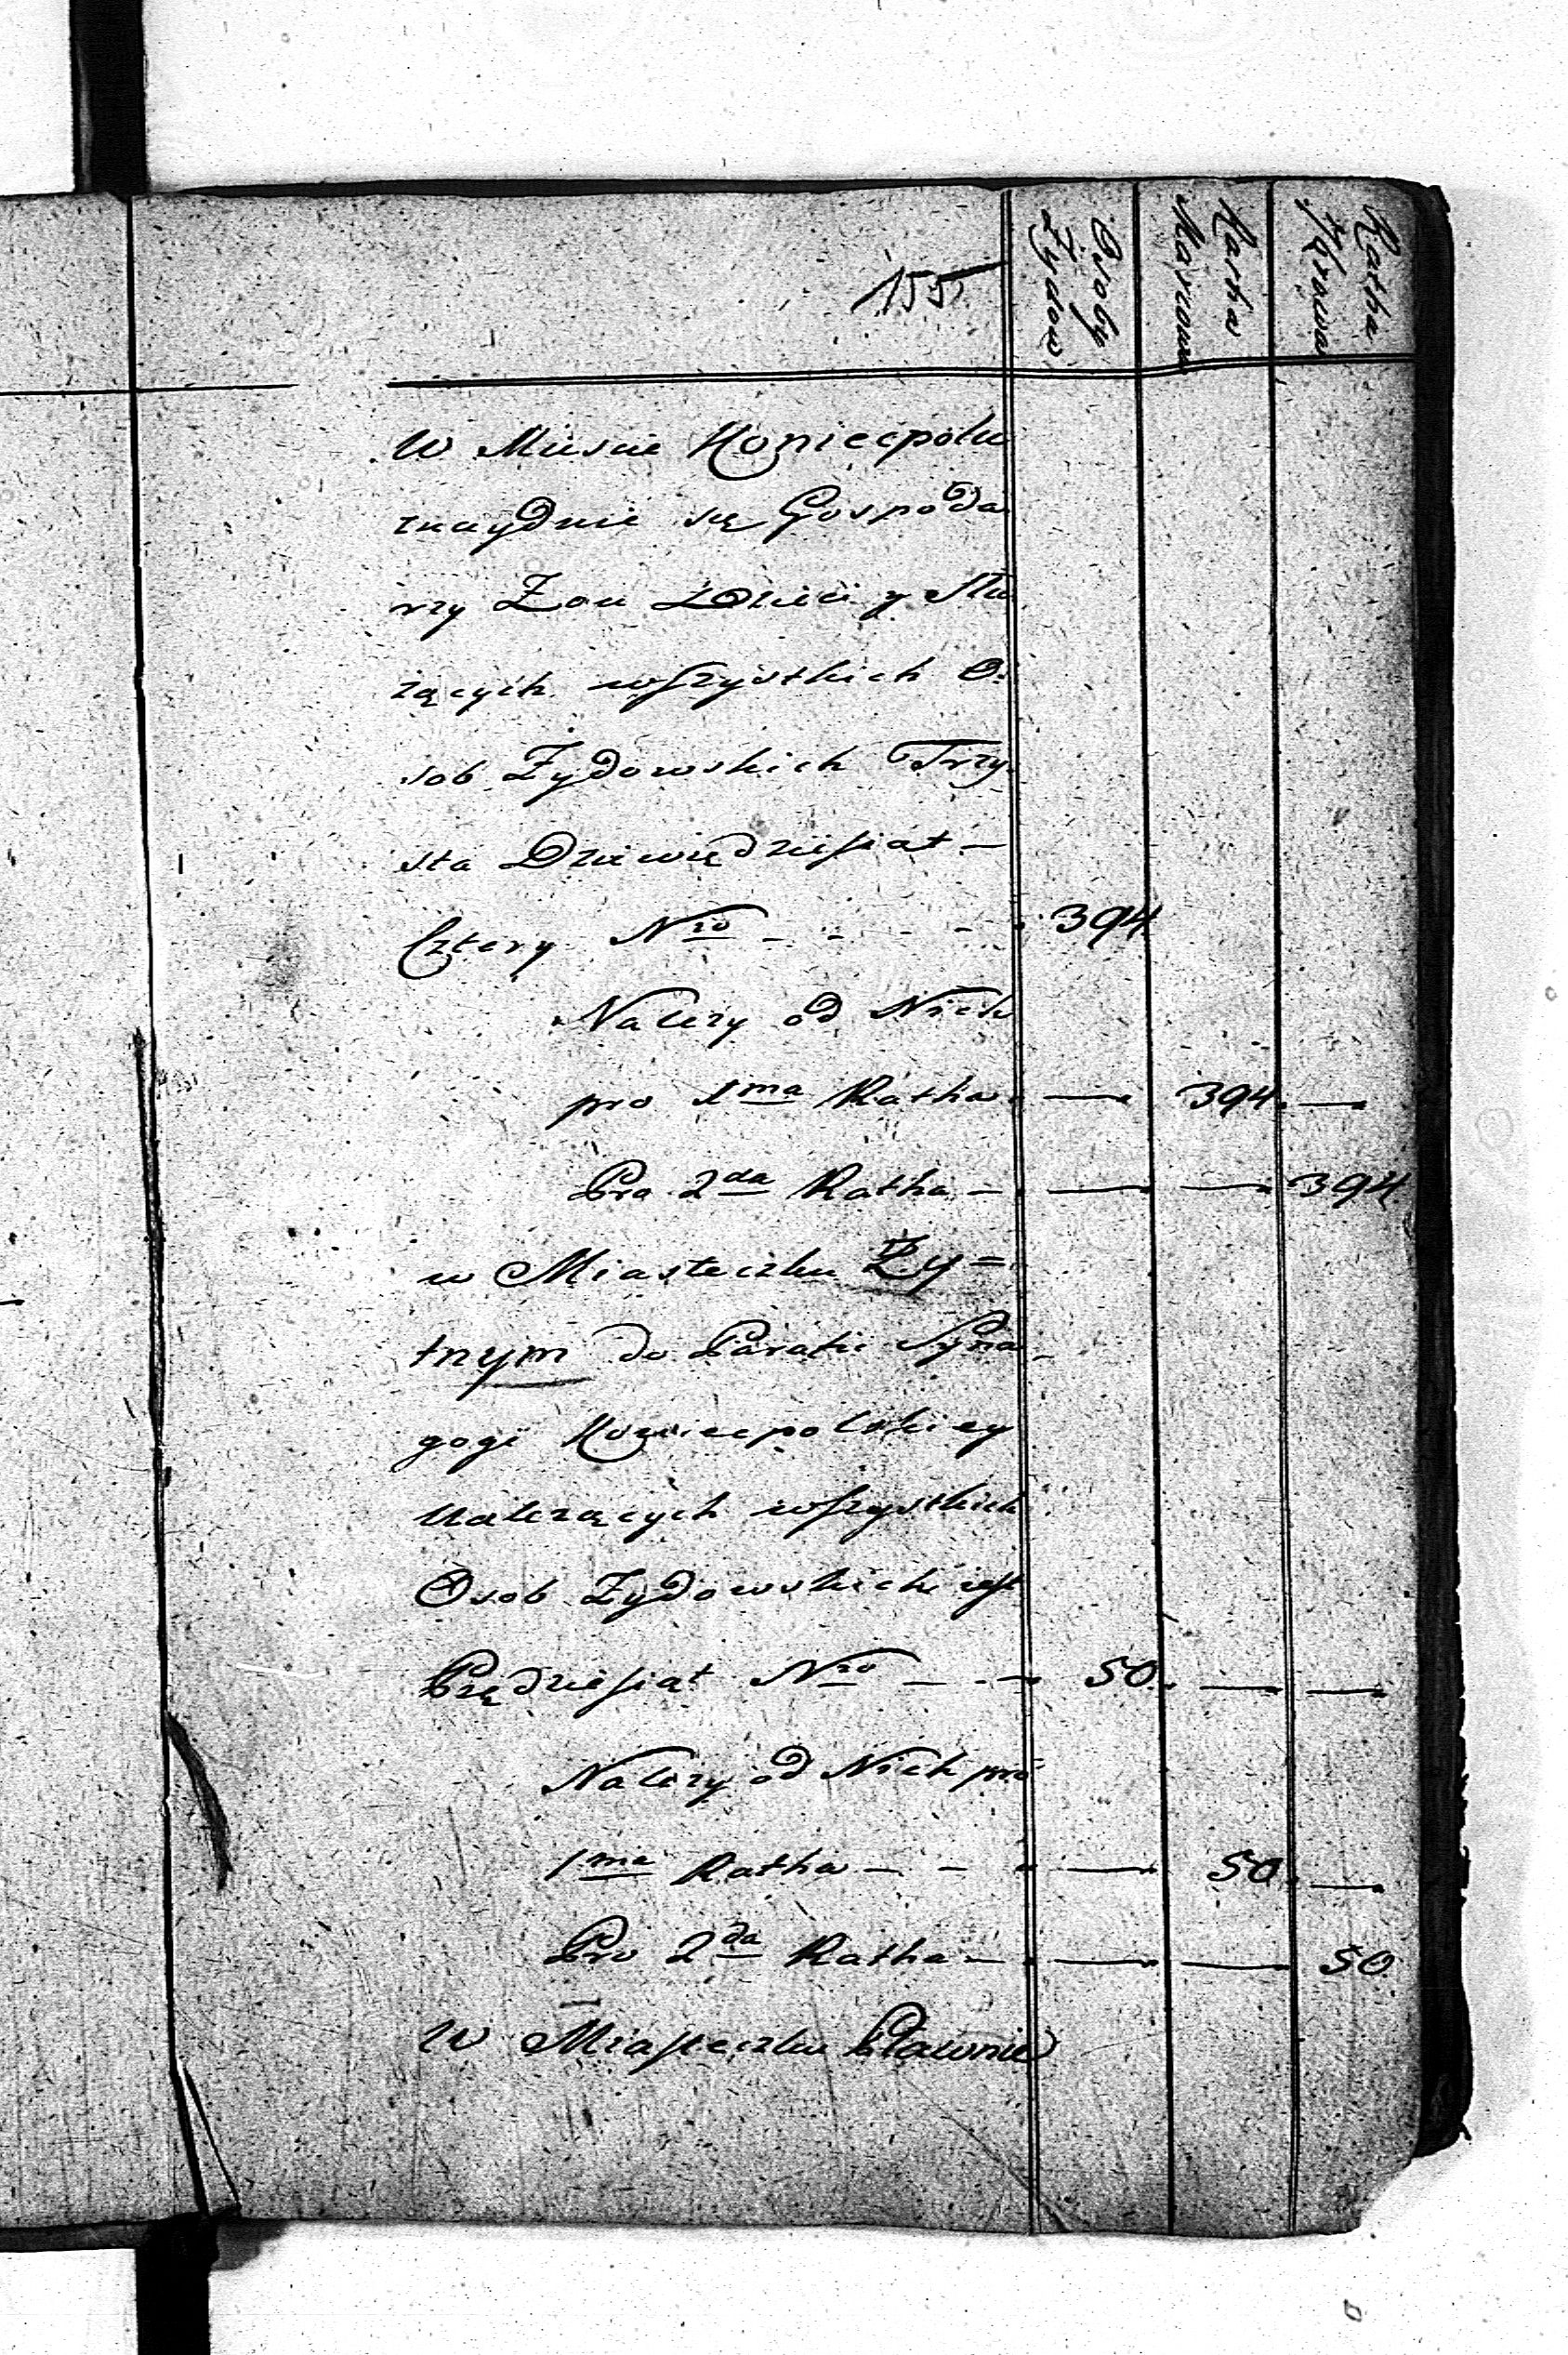 155
Osoby Żydow
Ratha Marcowa
Ratha 7browa
W Miescie Koniecpolu
znayduie się Gospoda
rzy Zon Dzieci y Słu
żących wszystkich O:
sob Żydowskich Trzy
sta Dziewiędziesiat —
Cztery Nro - - - - 394
Nalezy od Nich
pro 1ma Ratha — 394 —
Pro 2da Ratha — — — 394
w Miasteczku Zy=
tnym do Parafii Syna
gogi Koniecpolskiey
Nalezących wszystkich
Osob Zydowskich iest
Piędziesiat Nro — - — 50 — —
Nalezy od Nich pro
1ma Ratha — - - — 50 —
Pro 2da Ratha — — — 50
W Miasteczku Pławnie